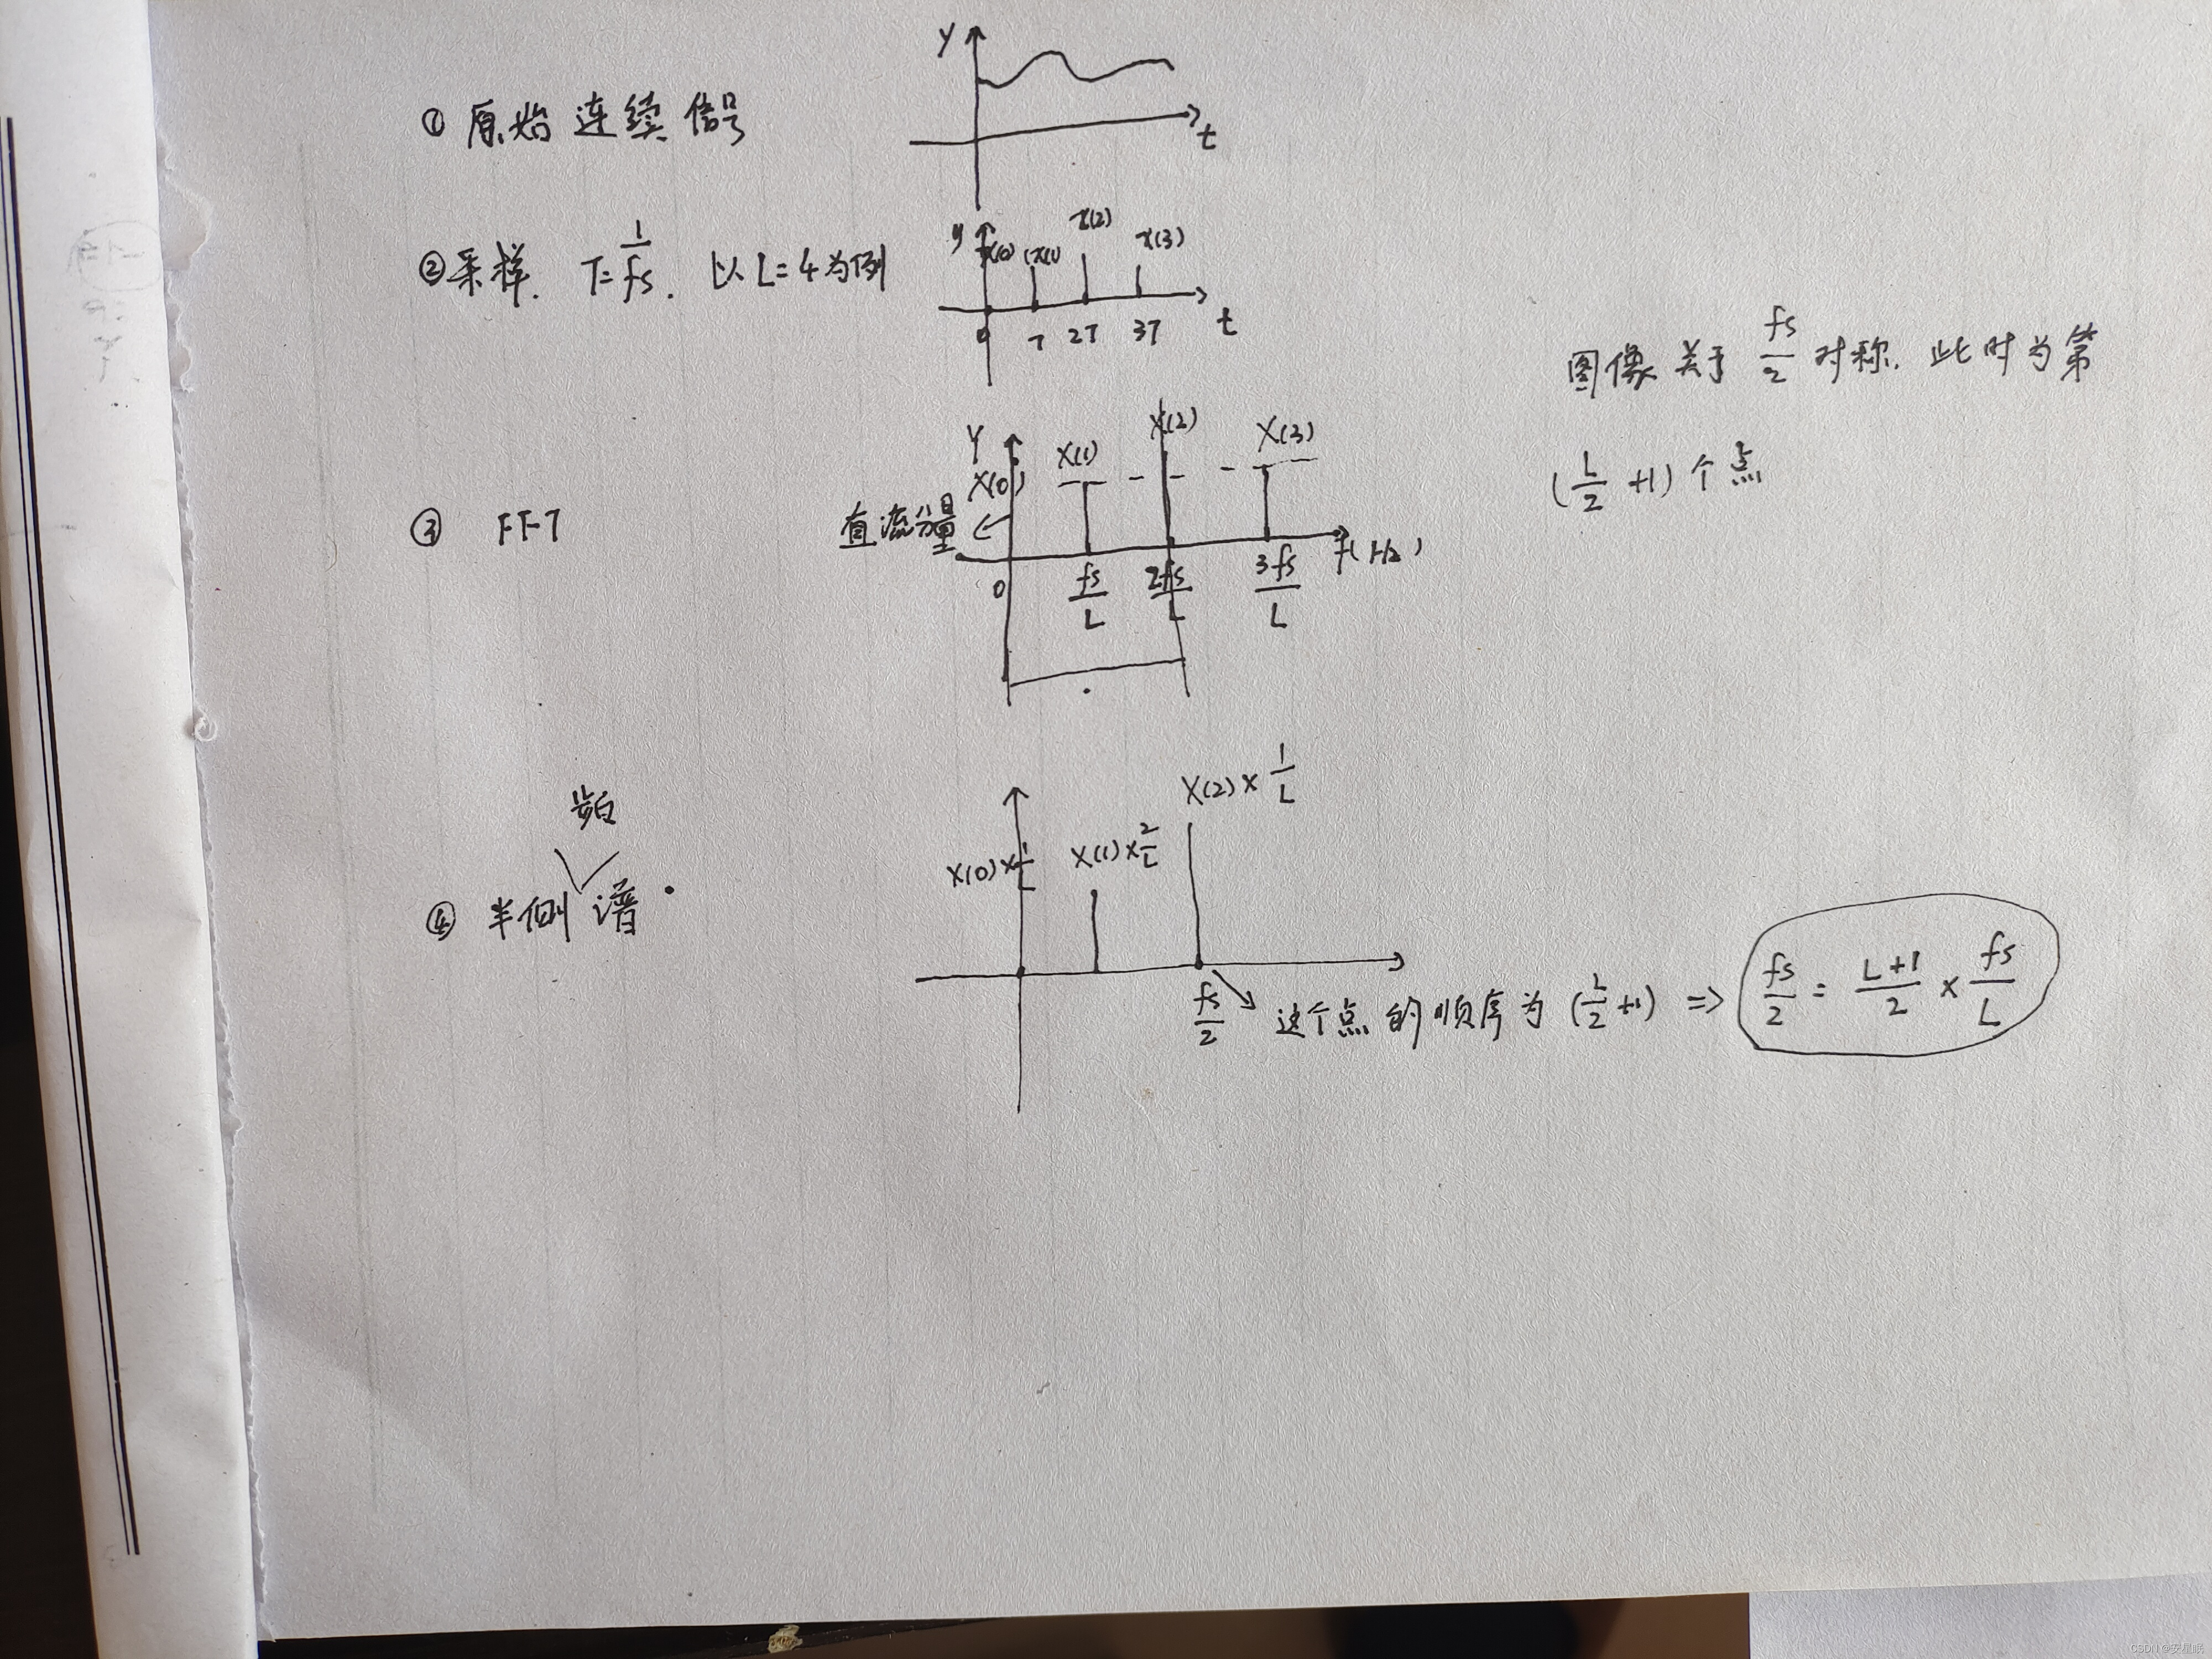 Y
① 原始连续信号
t
② 采样. T=1/fs. 以L=4为例
y x(0) x(1) x(2) x(3)
0 T 2T 3T t
图像关于 fs/2 对称. 此时为第
(L/2 +1) 个点
Y X(0) X(1) X(2) X(3)
③ FFT
直流分量
0 fs/L 2fs/L 3fs/L f(Hz)
频
④ 半侧谱
X(0)×1/L X(1)×2/L X(2)×1/L
fs/2 这个点的顺序为 (L/2 +1) => fs/2 = L+1/2 × fs/L
CSDN @安星眠